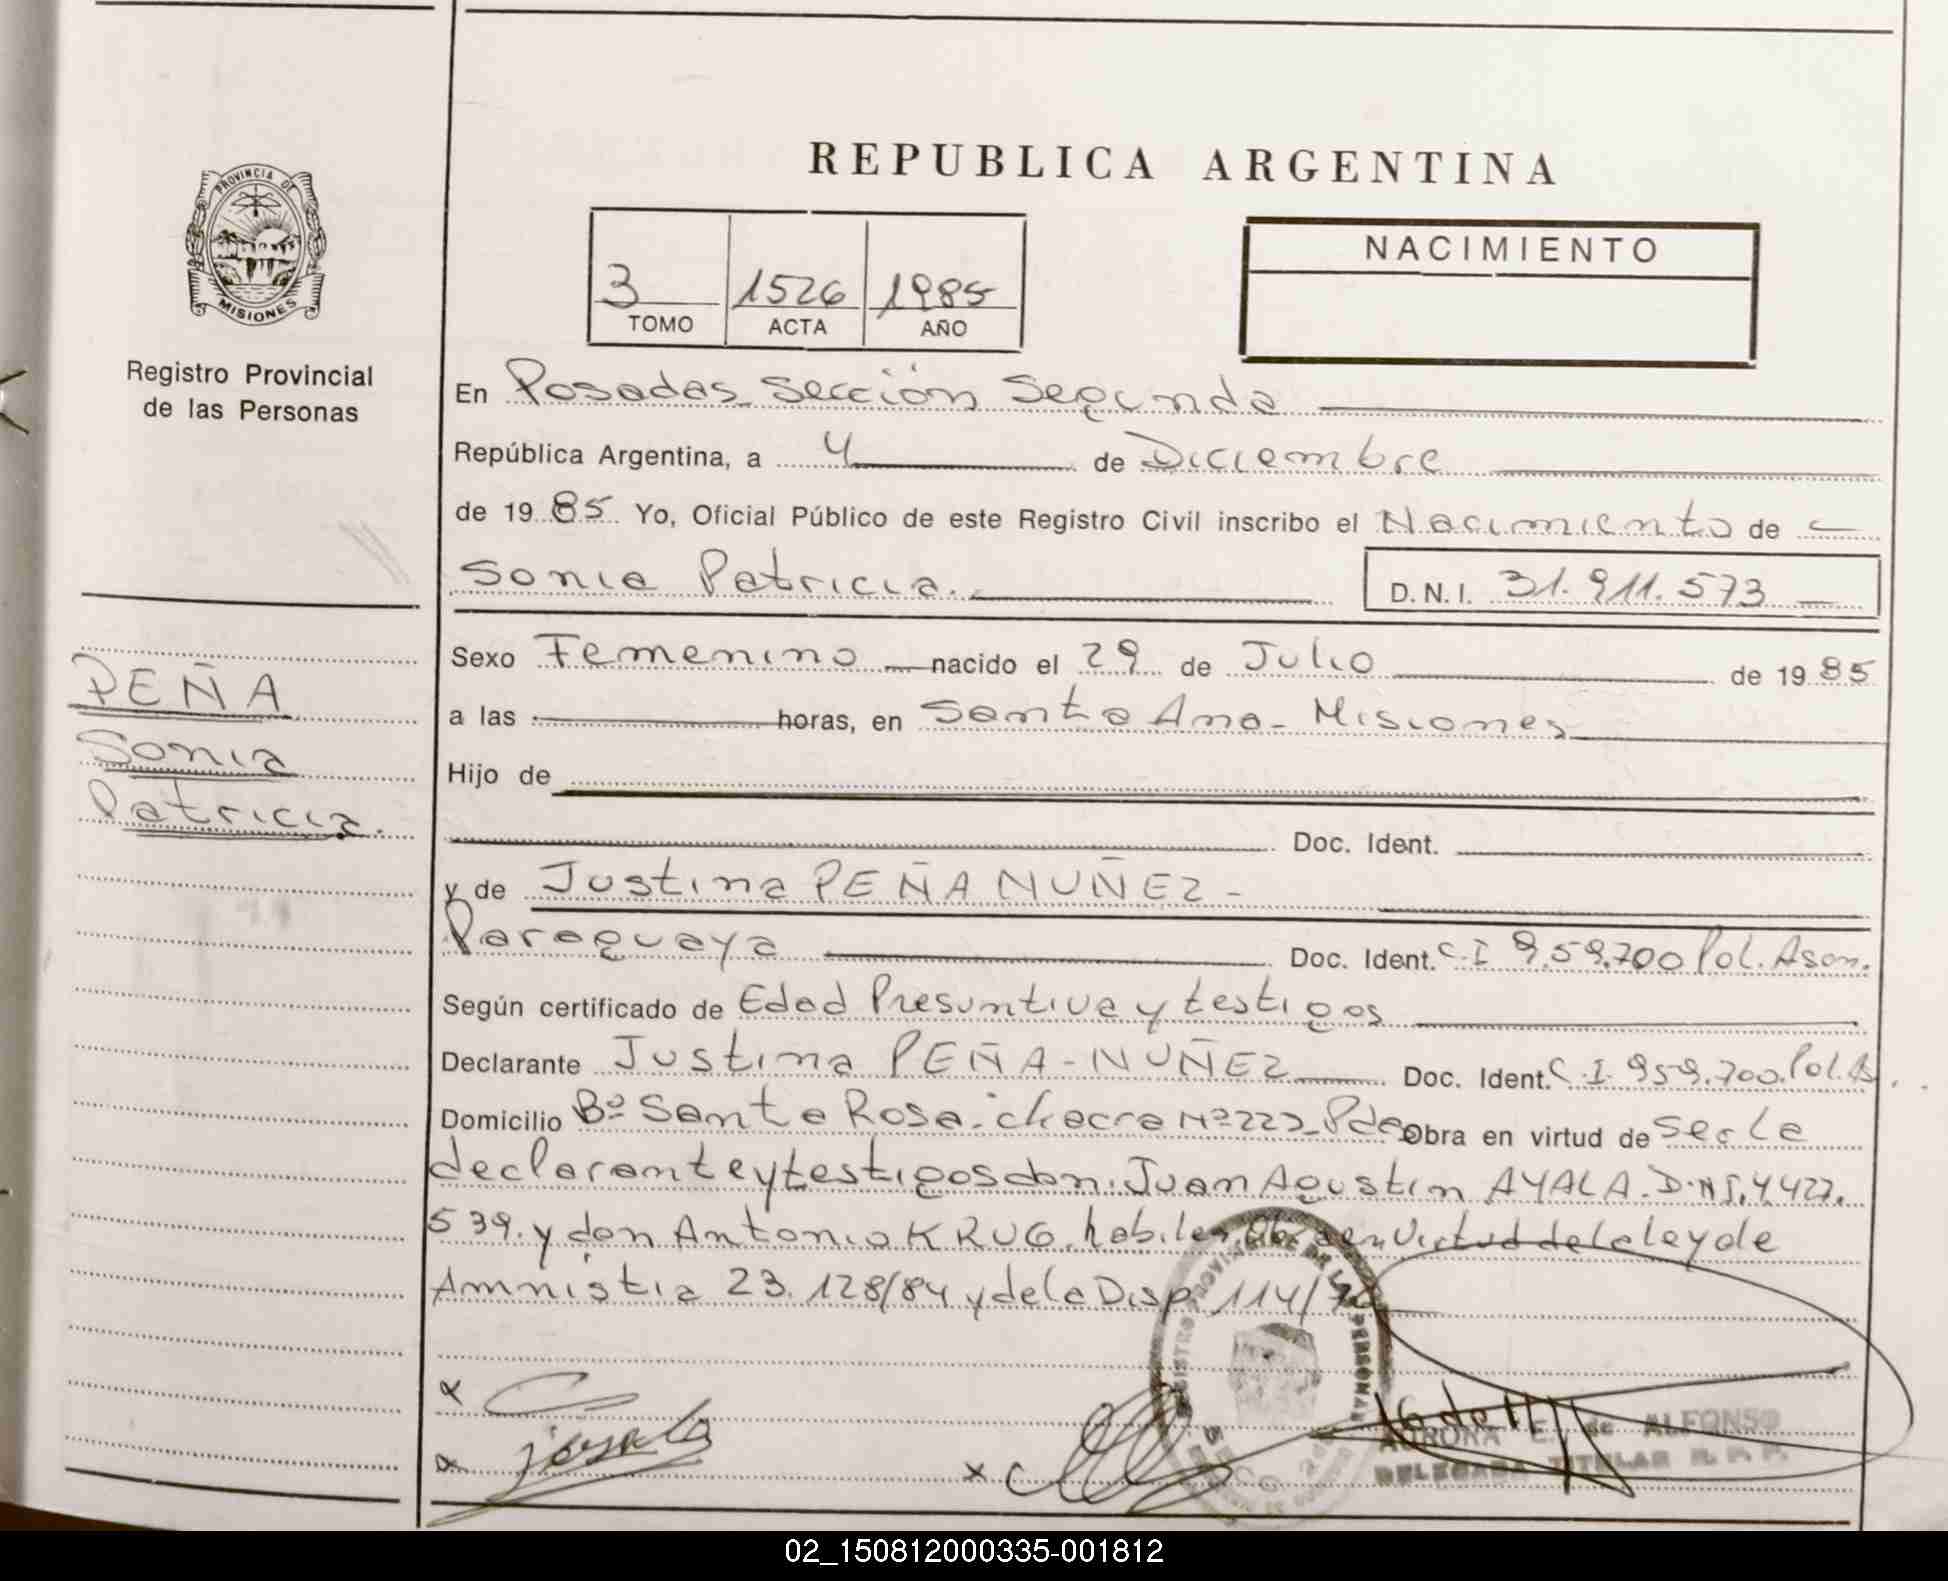 REPUBLICA ARGENTINA
PROVINCIA DE
MISIONES
Registro Provincial
de las Personas
3 1526 1985
TOMO ACTA AÑO
NACIMIENTO
En Posadas Sección Segunda
República Argentina, a 4 de Diciembre
de 1985 Yo, Oficial Público de este Registro Civil inscribo el Nacimiento de
Sonia Patricia. D.N.I. 31.911.573
PEÑA
Sonia
Patricia.
Sexo Femenino nacido el 29 de Julio de 1985
a las horas, en Santa Ana - Misiones
Hijo de
Doc. Ident.
y de Justina PEÑA NUÑEZ -
Paraguaya Doc. Ident. C.I 9.59.700 Pol. Asom.
Según certificado de Edad Presuntiva y testigos
Declarante Justina PEÑA-NUÑEZ Doc. Ident. C.I. 959.700. Pol. As.
Domicilio Bº Santa Rosa - chacra Nº 222 - Pdas Obra en virtud de ser la
declarante y testigos don. Juan Agustin AYALA. D.N.I. 4.427.
539. y don Antonio KRUG. habiles. Obra en Virtud de la ley de
Amnistia 23.128/84 y de la Disp. 114/
AURORA E. de ALFONSO
DELEGADA TITULAR R. P. P.
02_150812000335-001812